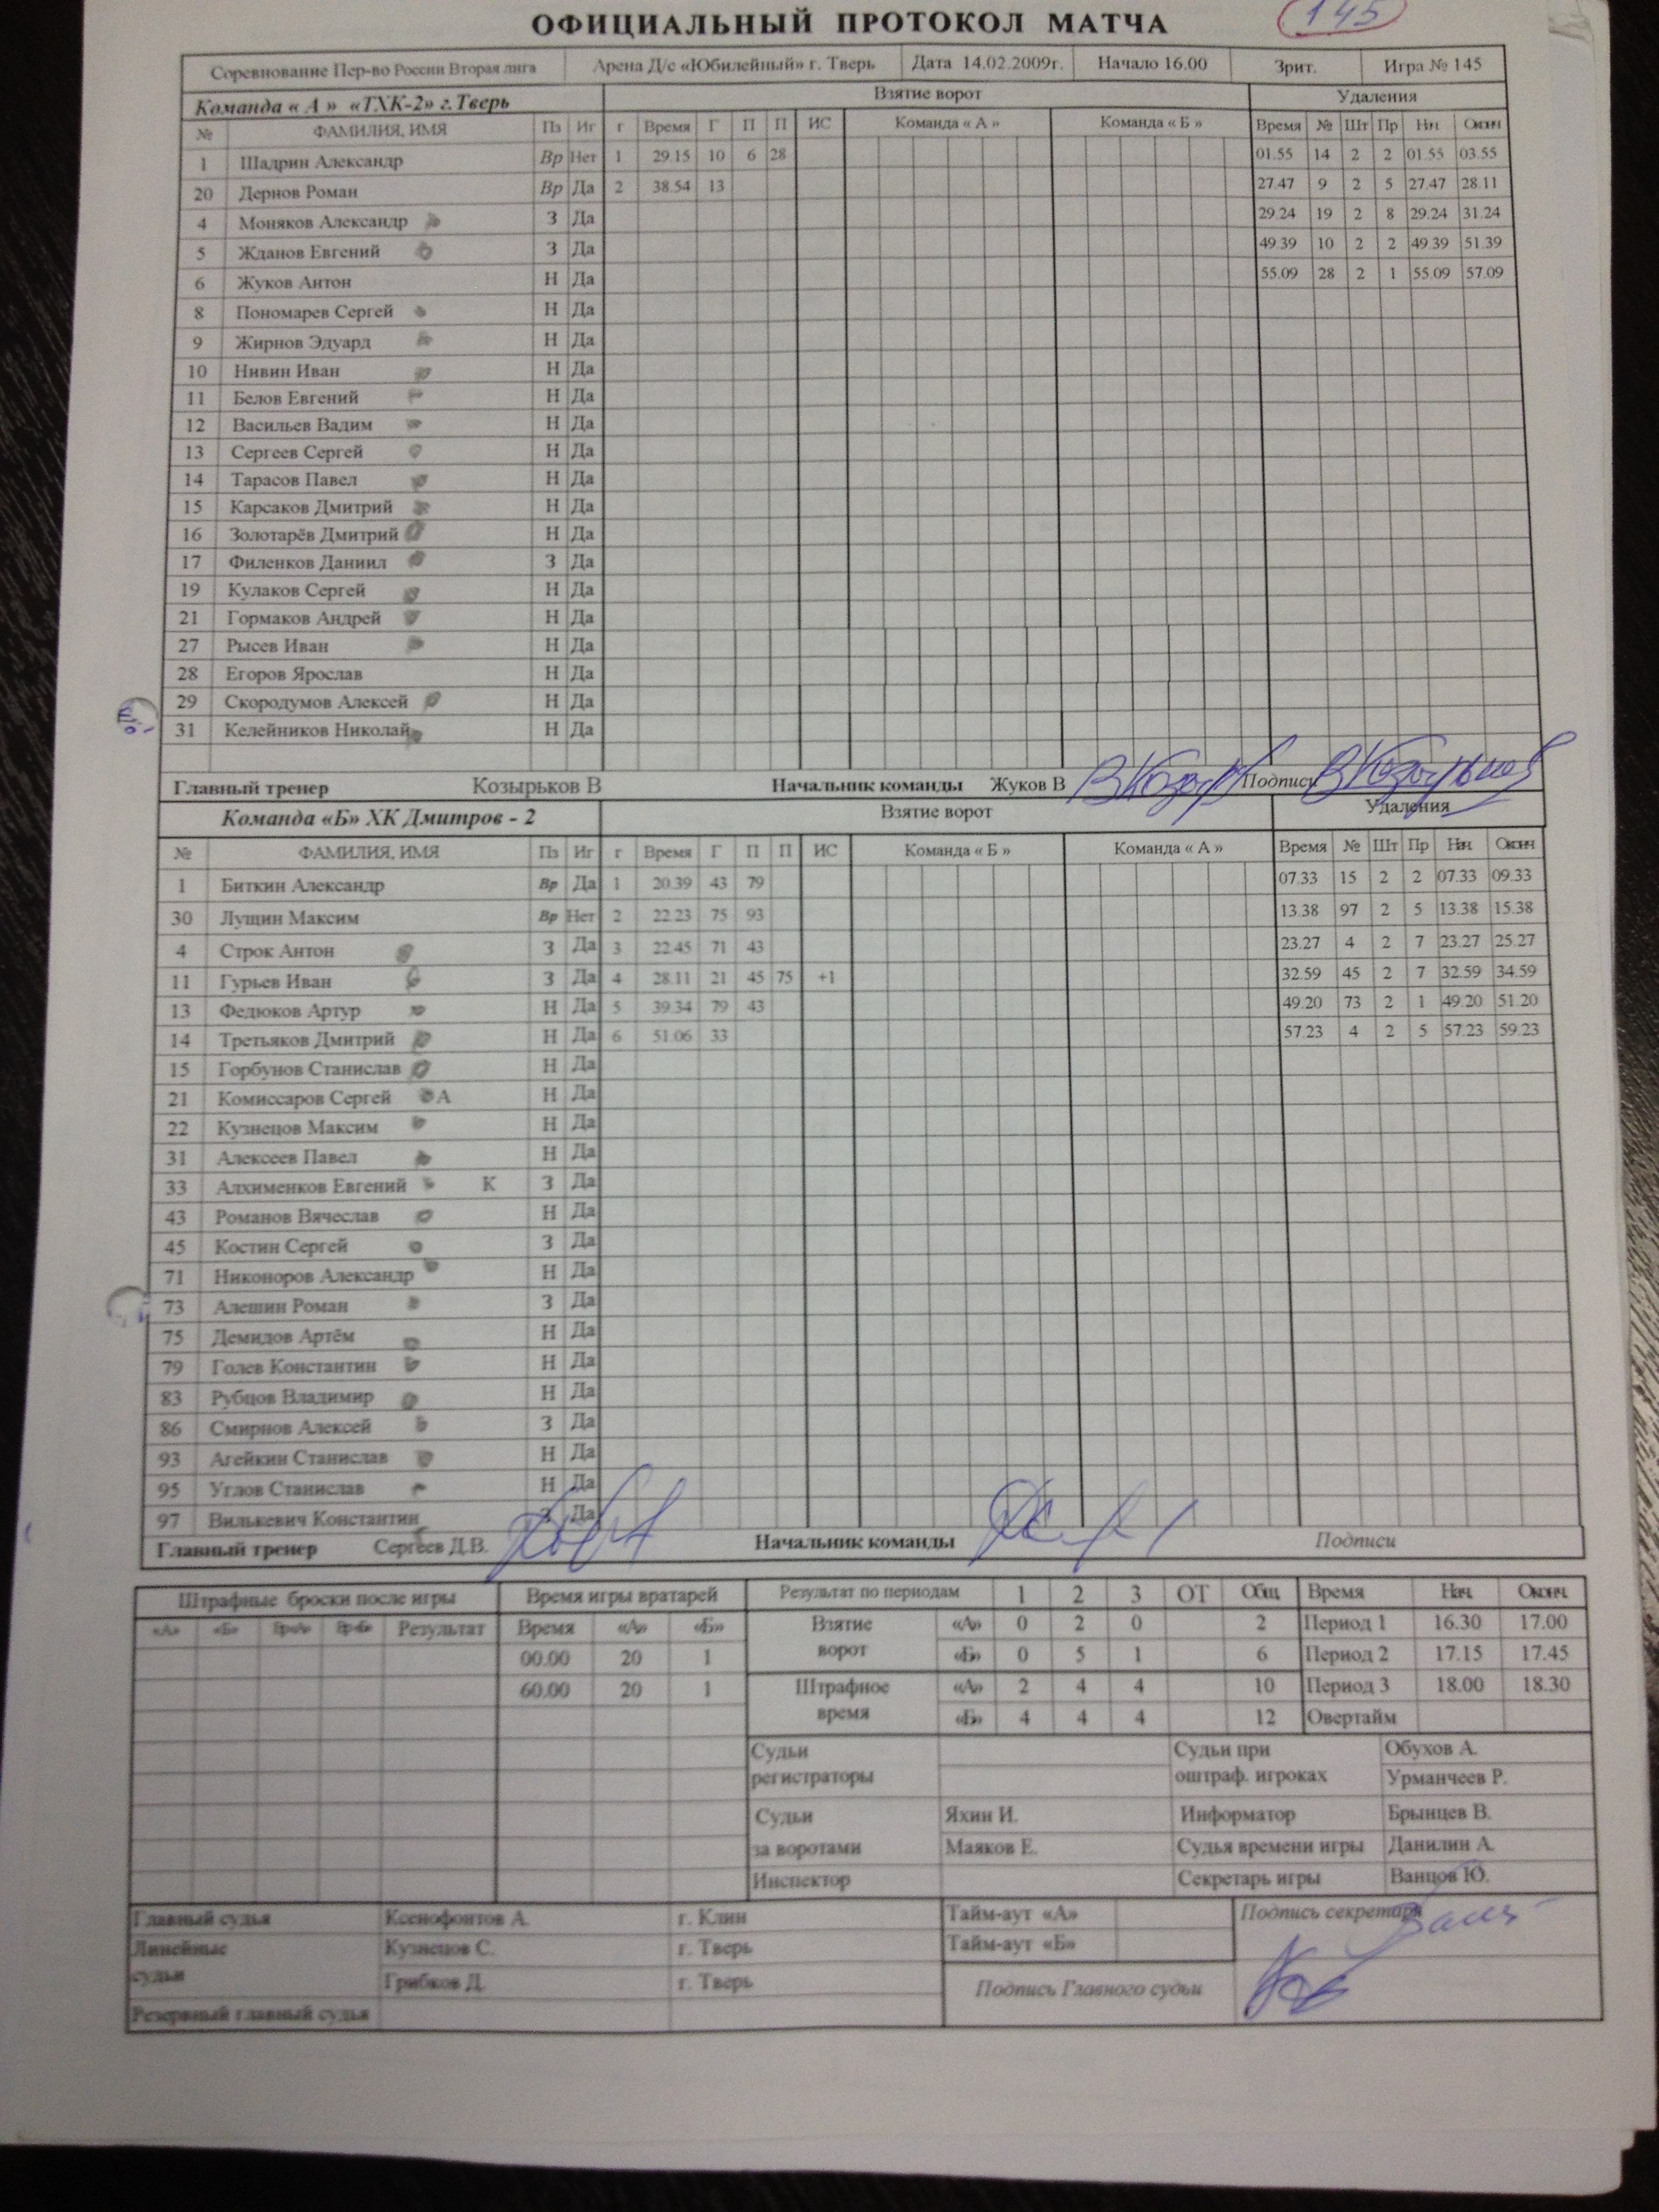 ОФИЦИАЛЬНЫЙ ПРОТОКОЛ МАТЧА 145
Соревнование Пер-во России Вторая лига Арена Д/с «Юбилейный» г. Тверь Дата 14.02.2009г. Начало 16.00 Зрит. Игра № 145
Команда « А » «ТХК-2» г.Тверь Взятие ворот Удаления
№ ФАМИЛИЯ, ИМЯ Пз Иг г Время Г П П ИС Команда « А » Команда « Б » Время № Шт Пр Нач Оконч
1 Шадрин Александр Вр Нет 1 29.15 10 6 28 01.55 14 2 2 01.55 03.55
20 Дернов Роман Вр Да 2 38.54 13 27.47 9 2 5 27.47 28.11
4 Моняков Александр З Да 29.24 19 2 8 29.24 31.24
5 Жданов Евгений З Да 49.39 10 2 2 49.39 51.39
6 Жуков Антон Н Да 55.09 28 2 1 55.09 57.09
8 Пономарев Сергей Н Да
9 Жирнов Эдуард Н Да
10 Нивин Иван Н Да
11 Белов Евгений Н Да
12 Васильев Вадим Н Да
13 Сергеев Сергей Н Да
14 Тарасов Павел Н Да
15 Карсаков Дмитрий Н Да
16 Золотарёв Дмитрий Н Да
17 Филенков Даниил З Да
19 Кулаков Сергей Н Да
21 Гормаков Андрей Н Да
27 Рысев Иван Н Да
28 Егоров Ярослав Н Да
29 Скородумов Алексей Н Да
31 Келейников Николай Н Да
Главный тренер Козырьков В Начальник команды Жуков В Подписи
Команда «Б» ХК Дмитров - 2 Взятие ворот Удаления
№ ФАМИЛИЯ, ИМЯ Пз Иг г Время Г П П ИС Команда « Б » Команда « А » Время № Шт Пр Нач Оконч
1 Биткин Александр Вр Да 1 20.39 43 79 07.33 15 2 2 07.33 09.33
30 Лущин Максим Вр Нет 2 22.23 75 93 13.38 97 2 5 13.38 15.38
4 Строк Антон З Да 3 22.45 71 43 23.27 4 2 7 23.27 25.27
11 Гурьев Иван З Да 4 28.11 21 45 75 +1 32.59 45 2 7 32.59 34.59
13 Федюков Артур Н Да 5 39.34 79 43 49.20 73 2 1 49.20 51.20
14 Третьяков Дмитрий Н Да 6 51.06 33 57.23 4 2 5 57.23 59.23
15 Горбунов Станислав Н Да
21 Комиссаров Сергей А Н Да
22 Кузнецов Максим Н Да
31 Алексеев Павел Н Да
33 Алхименков Евгений К З Да
43 Романов Вячеслав Н Да
45 Костин Сергей З Да
71 Никоноров Александр Н Да
73 Алешин Роман З Да
75 Демидов Артём Н Да
79 Голев Константин Н Да
83 Рубцов Владимир Н Да
86 Смирнов Алексей З Да
93 Агейкин Станислав Н Да
95 Углов Станислав Н Да
97 Вилькевич Константин З Да
Главный тренер Сергеев Д.В. Начальник команды Подписи
Штрафные броски после игры Время игры вратарей Результат по периодам 1 2 3 ОТ Общ Время Нач. Оконч.
«А» «Б» Вр«А» Вр«Б» Результат Время «А» «Б» Взятие ворот «А» 0 2 0 2 Период 1 16.30 17.00
00.00 20 1 «Б» 0 5 1 6 Период 2 17.15 17.45
60.00 20 1 Штрафное время «А» 2 4 4 10 Период 3 18.00 18.30
«Б» 4 4 4 12 Овертайм
Судьи регистраторы Судьи при оштраф. игроках Обухов А.
Урманчеев Р.
Судьи Яхин И. Информатор Брынцев В.
за воротами Маяков Е. Судья времени игры Данилин А.
Инспектор Секретарь игры Ванцов Ю.
Главный судья Ксенофонтов А. г. Клин Тайм-аут «А» Подпись секретаря
Линейные Кузнецов С. г. Тверь Тайм-аут «Б»
судьи Грибков Д. г. Тверь Подпись Главного судьи
Резервный главный судья